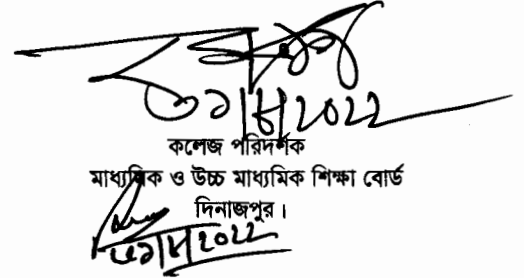 ৩১/৮/2022
কলেজ পরিদর্শক
মাধ্যমিক ও উচ্চ মাধ্যমিক শিক্ষা বোর্ড
দিনাজপুর।
৩১/৮/2022